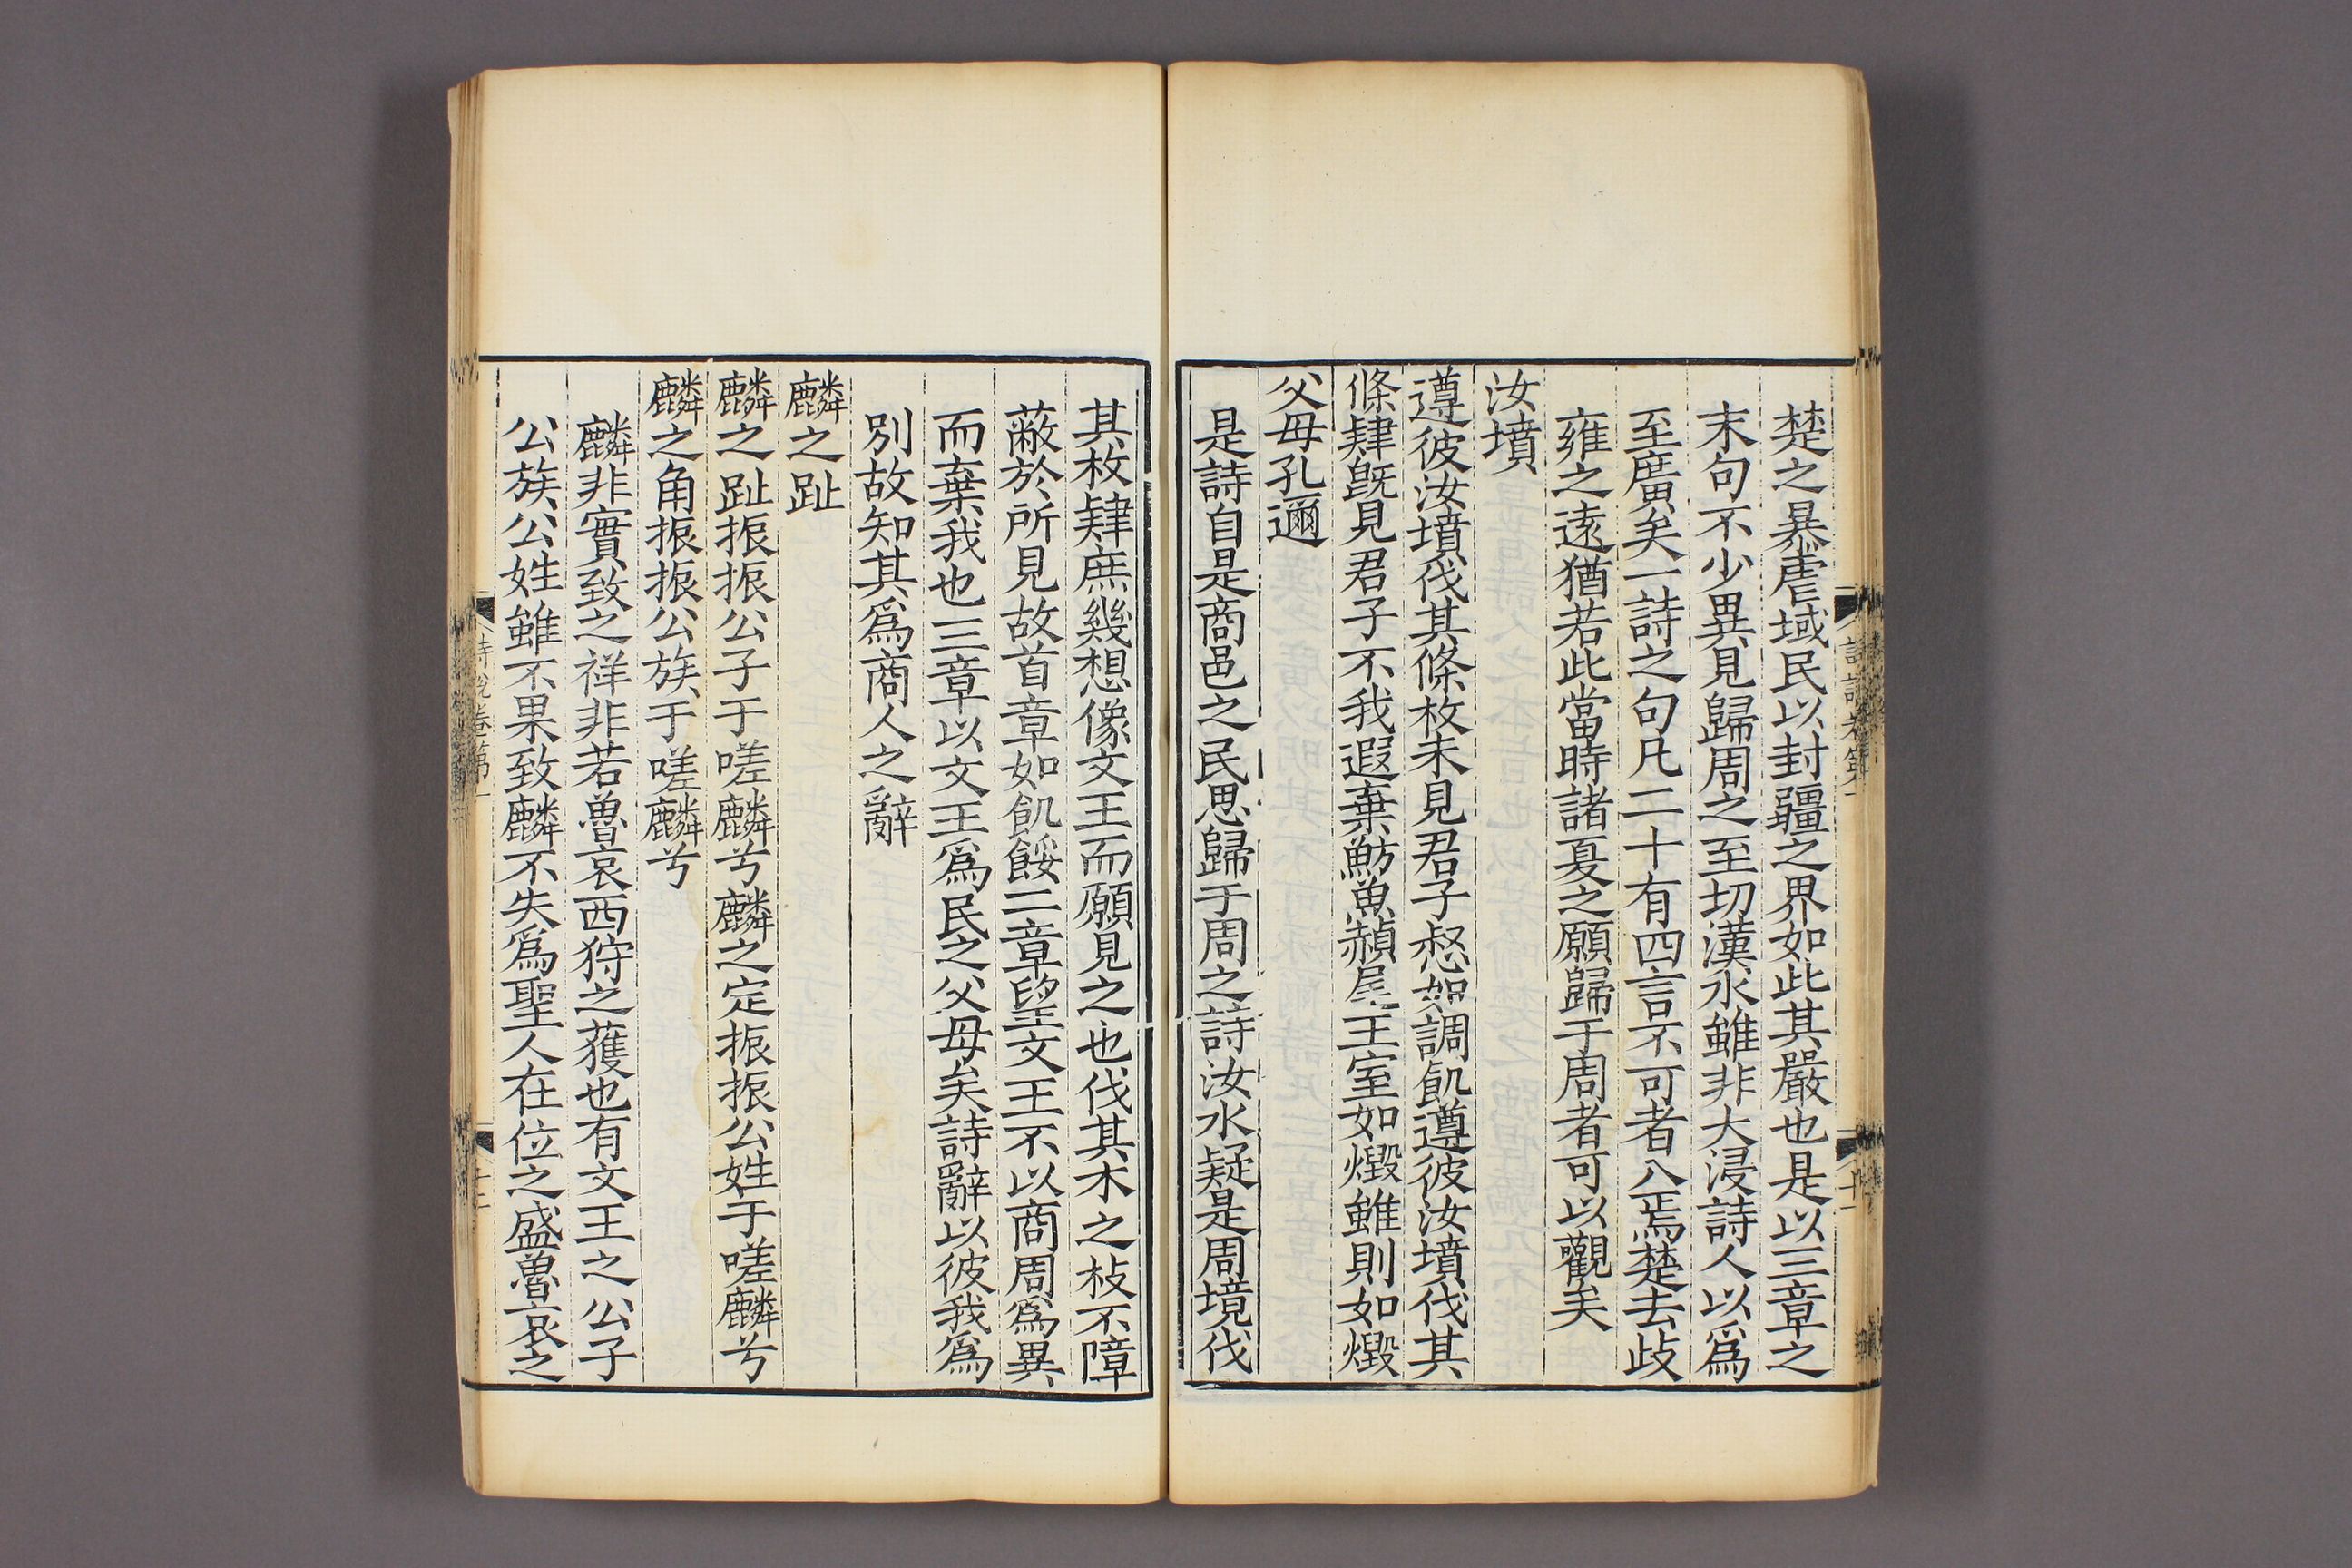 楚之暴虐域民以封疆之界如此其嚴也是以三章之
末句不少異見歸周之至切漢水雖非大浸詩人以爲
至廣矣一詩之句凡二十有四言不可者八焉楚去歧
雍之遠猶若此當時諸夏之願歸于周者可以觀矣
汝墳
遵彼汝墳伐其條枚未見君子惄如調飢遵彼汝墳伐其
條肄旣見君子不我遐棄魴魚赬尾王室如燬雖則如燬
父母孔邇
是詩自是商邑之民思歸于周之詩汝水疑是周境伐
其枚肄庶幾想像文王而願見之也伐其木之枝不障
蔽於所見故首章如飢餒二章望文王不以商周爲異
而棄我也三章以文王爲民之父母矣詩辭以彼我爲
別故知其爲商人之辭
麟之趾
麟之趾振振公子于嗟麟兮麟之定振振公姓于嗟麟兮
麟之角振振公族于嗟麟兮
麟非實致之祥非若魯哀西狩之獲也有文王之公子
公族公姓雖不果致麟不失爲聖人在位之盛魯哀之
詩說卷第一
十二